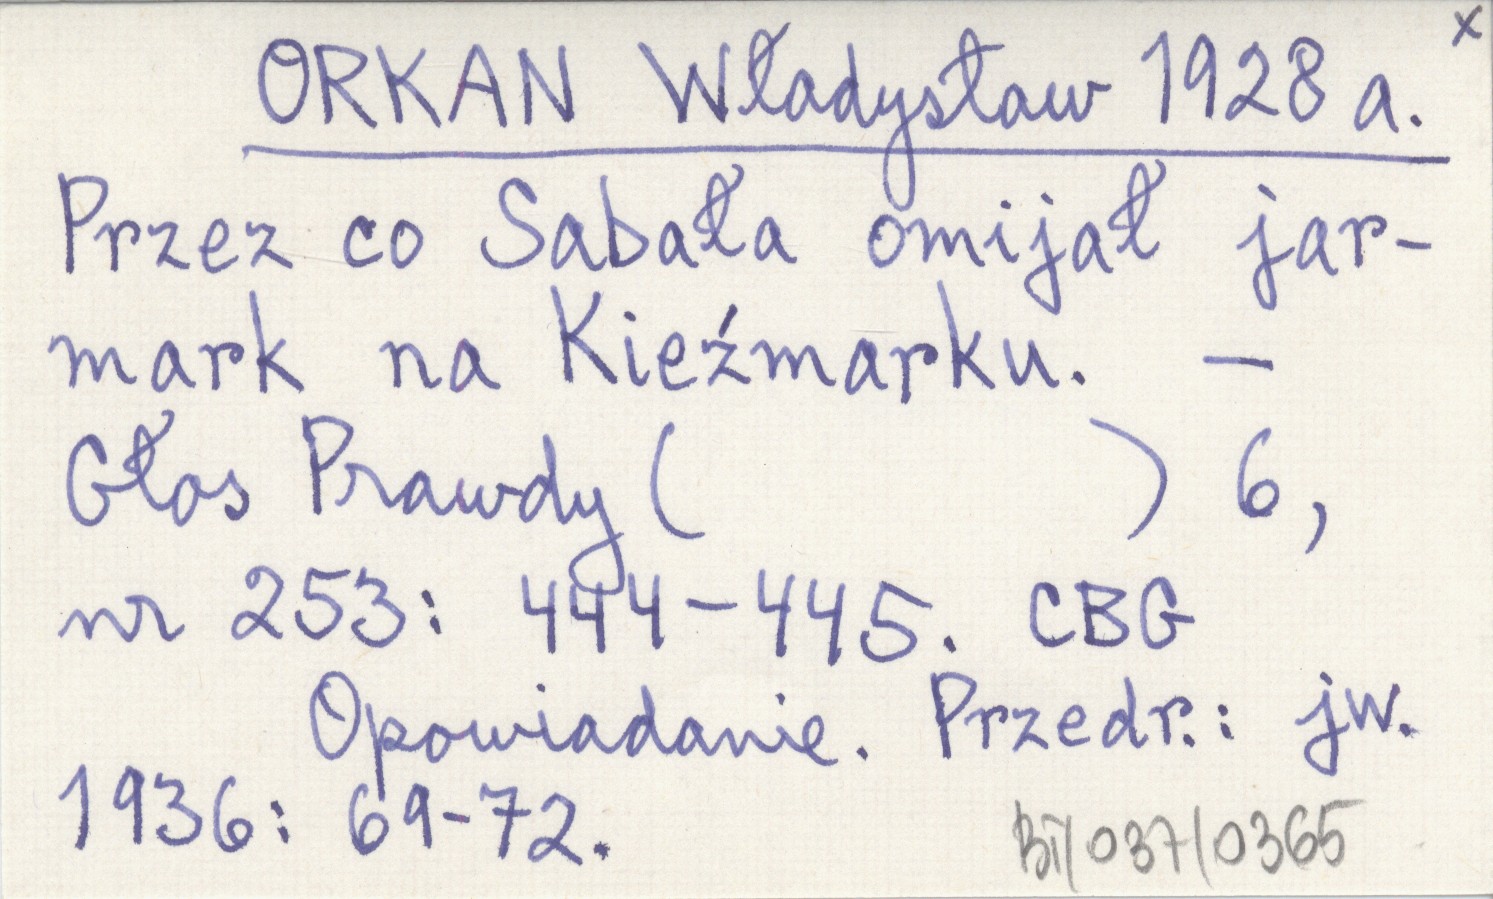 x
ORKAN Władysław 1928 a.
Przez co Sabała omijał jar-
mark na Kieźmarku. –
Głos Prawdy (            ) 6,
nr 253: 444–445. CBG
Opowiadanie. Przedr.: jw.
1936: 69-72.
BT/037/0365